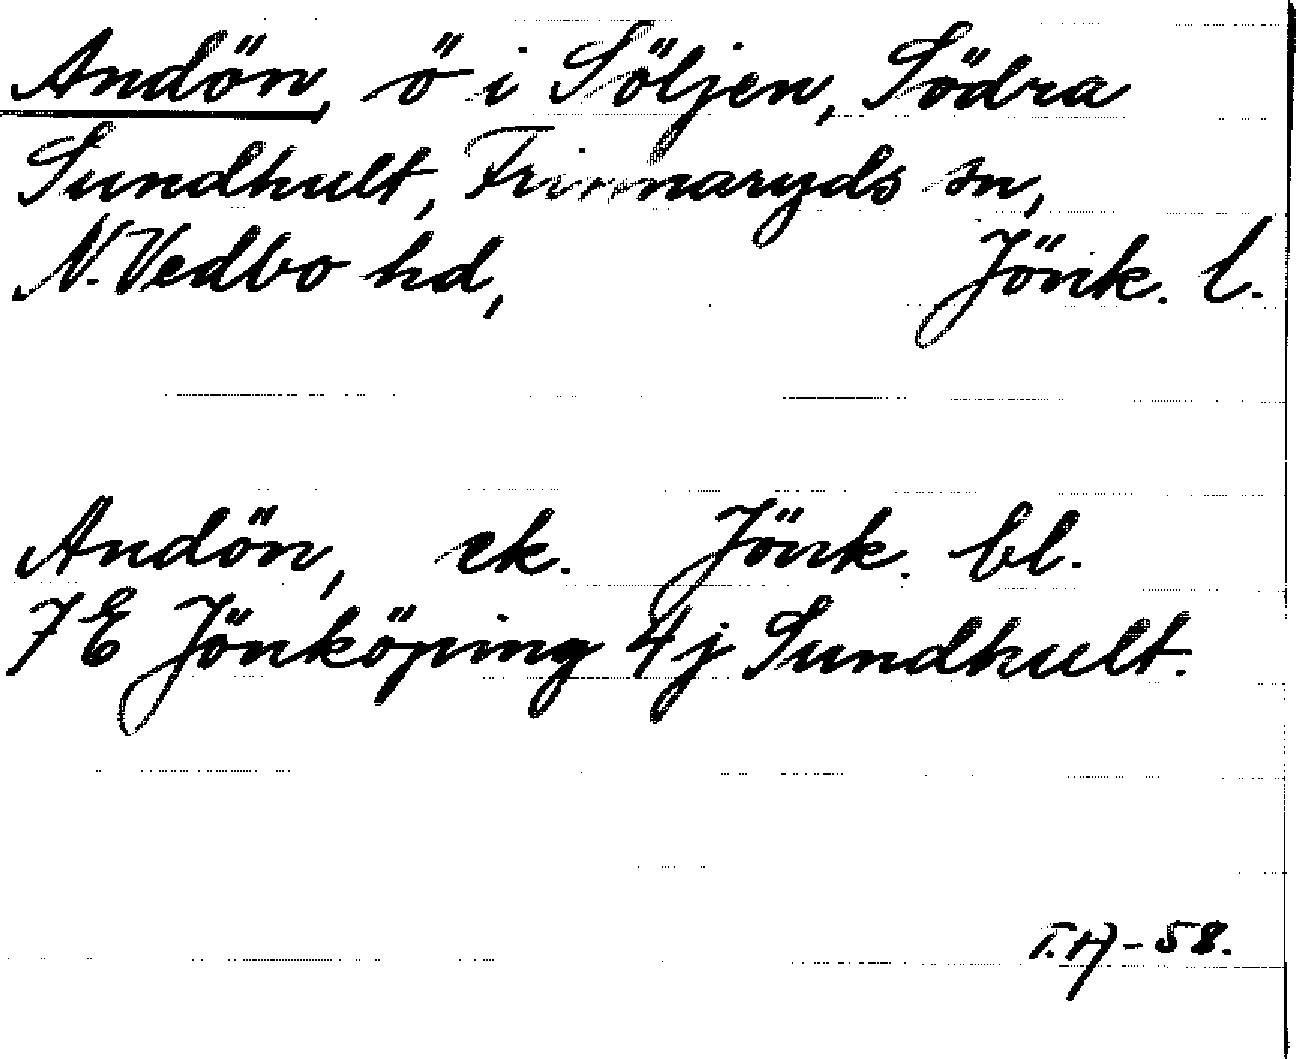 Andön, ö i Söljen, Södra
Sundhult, Frinnaryds sn,
N. Vedbo hd, Jönk. l.
Andön, ek. Jönk. bl.
7E Jönköping 4j Sundhult.
-58.